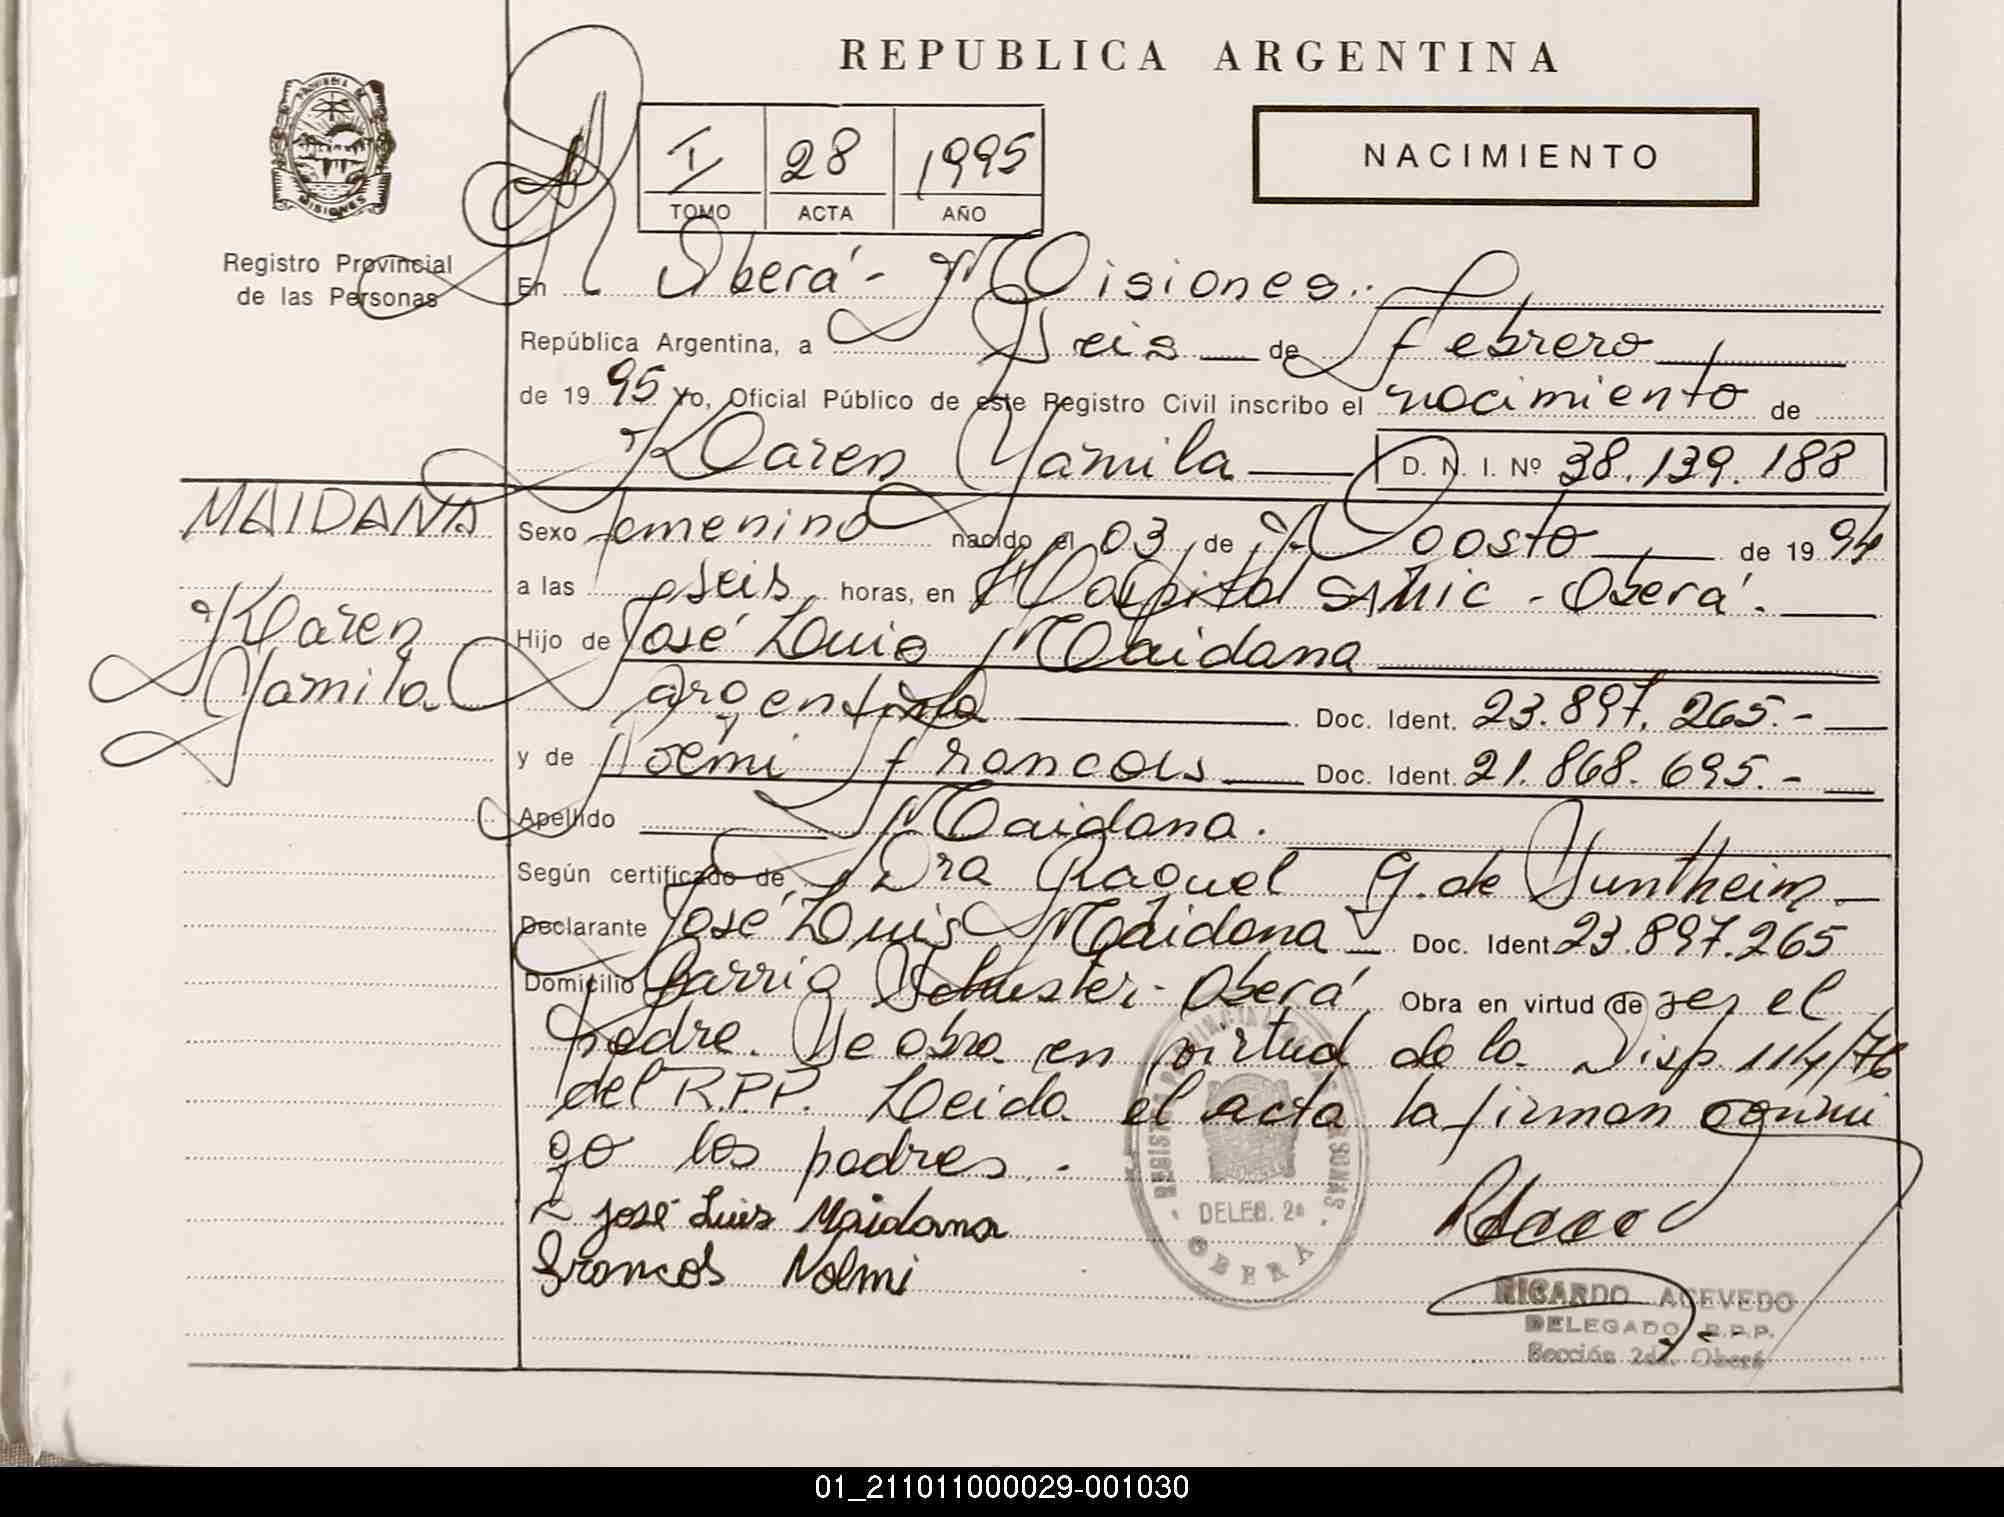 REPUBLICA ARGENTINA
PROVINCIA DE MISIONES
Registro Provincial
de las Personas
I 28 1995
TOMO ACTA AÑO
NACIMIENTO
En Oberá - Misiones..
República Argentina, a Seis de febrero
de 19 95 Yo, Oficial Público de este Registro Civil inscribo el nacimiento de
Karen Yamila D. N. I. Nº 38.139.188
MAIDANA
Karen
Yamila
Sexo femenino nacido el 03 de Agosto de 19 94
a las seis horas, en Hospital SAMIC - Oberá.
Hijo de José Luis Maidana
argentina Doc. Ident. 23.897.265.-
y de Noemi francois Doc. Ident. 21.868.695.-
Apellido Maidana.
Según certificado de Dra Raquel G. de Suntheim
Declarante José Luis Maidana Doc. Ident. 23.897.265
Domicilio Barrio Schuster - Oberá Obra en virtud de ser el
padre. Se obra en virtud de la Disp. 114/76
del R.P.P. Leida el acta la firman conmi
go los padres.
José Luis Maidana
francois Noemi
REGISTRO PROVINCIAL DE LAS PERSONAS
DELEG. 2ª
OBERA
RICARDO ACEVEDO
DELEGADO R.P.P.
Sección 2da. Oberá
01_211011000029-001030